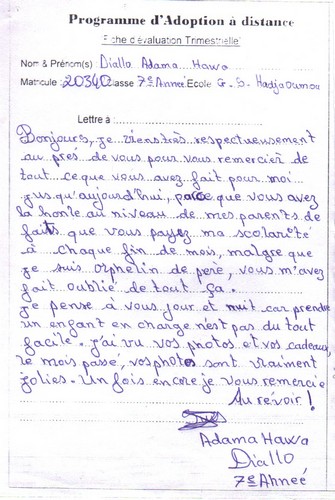 Programme d'Adoption à distance
Fiche d'évaluation Trimestrielle
Nom & Prénom(s) : Diallo Adama Hawa
Matricule : 20340 Classe 7è Année École G. S. Hadja Oumou
Lettre à :
Bonjours, je viens très respectueusement
au près de vous pour vous remercier de
tout ce que vous avez fait pour moi
jus qu'aujourd'hui, parce que vous avez
la honte au niveau de mes parents de
faits que vous payez ma scolarité
à chaque fin de mois, malgre que
je suis orphelin de père, vous m'avez
fait oublié de tout ça.
je pense à vous jour et nuit car prendre
un enfant en charge n'est pas du tout
facile. j'ai vu vos photos et vos cadeaux,
le mois passé, vos photos sont vraiment
jolies. Un fois encore je vous remercie
Au révoir !
Adama Hawa
Diallo
7è Anneé